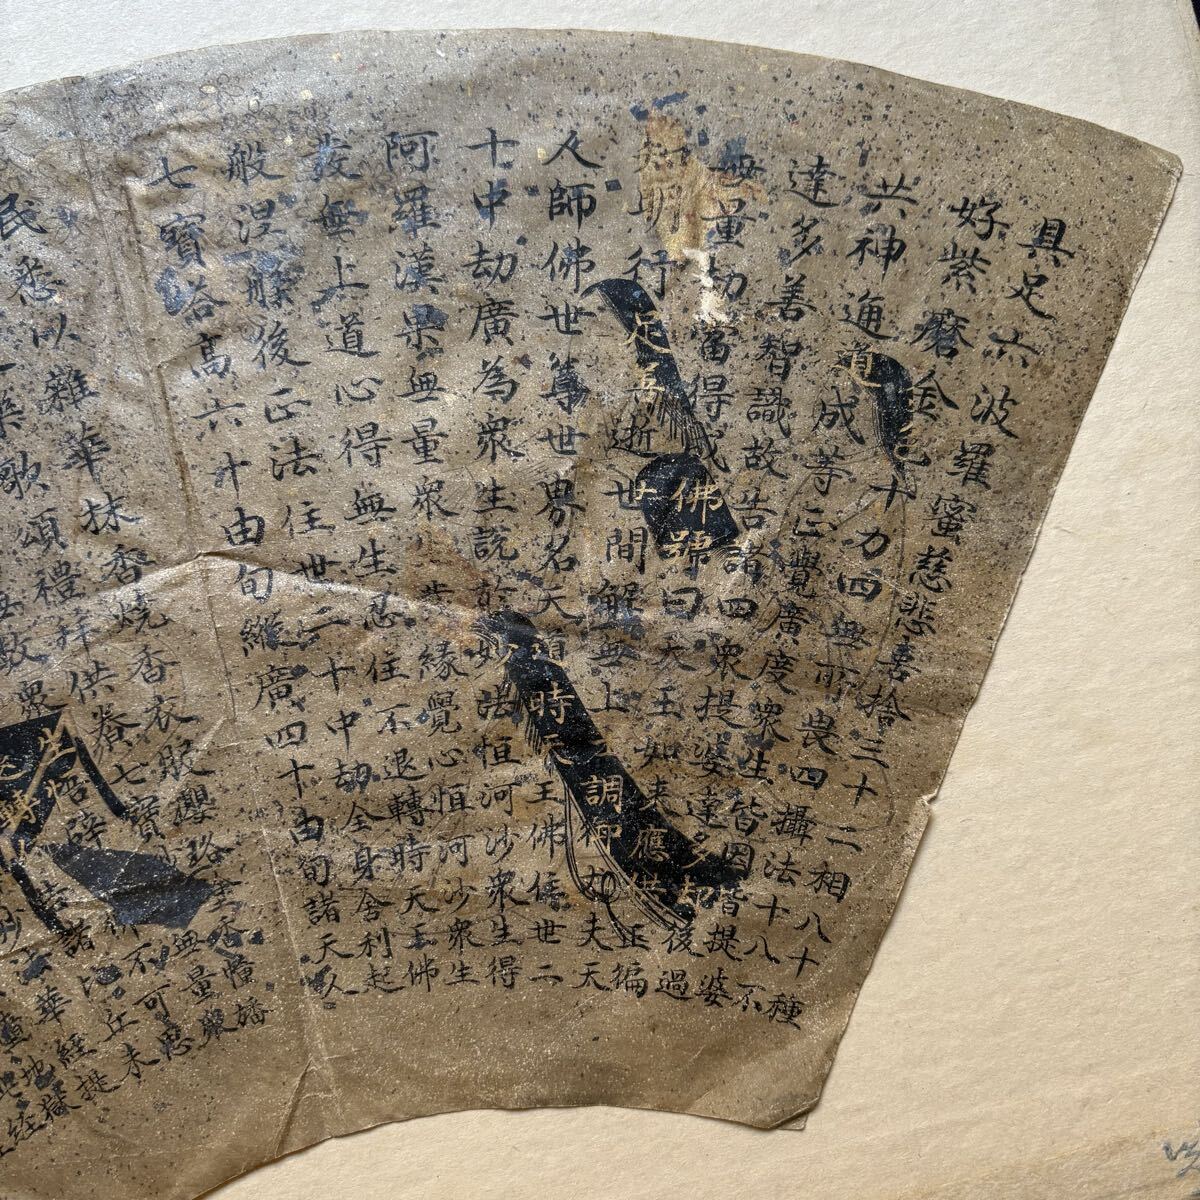 具足六波羅蜜慈悲喜捨三十二相八十種
好紫磨金色十力四無所畏四攝法十八不
共神通道成等正覺廣度衆生皆因皆提婆
達多善智識故告諸四衆提婆達多却後過
無量劫當得成佛號曰天王如来應供正徧
知明行足善逝世間解無上士調御丈夫天
人師佛世尊世界名天道時天王佛住世二
十中劫廣為衆生説於妙法恒河沙衆生得
阿羅漢果無量衆生發縁覺心恒河沙衆生
發無上道心得無生忍住不退轉時天王佛
般涅槃後正法住世二十中劫全身舍利起
七寶塔高六十由旬縱廣四十由旬諸天人
民悉以雜華抹香燒香衣服瓔珞塗香幢幡
樂歌頌禮拜供養七寶無量衆
衆生悟辟佛不可思
轉告諸比丘未
妙法華經提
地獄